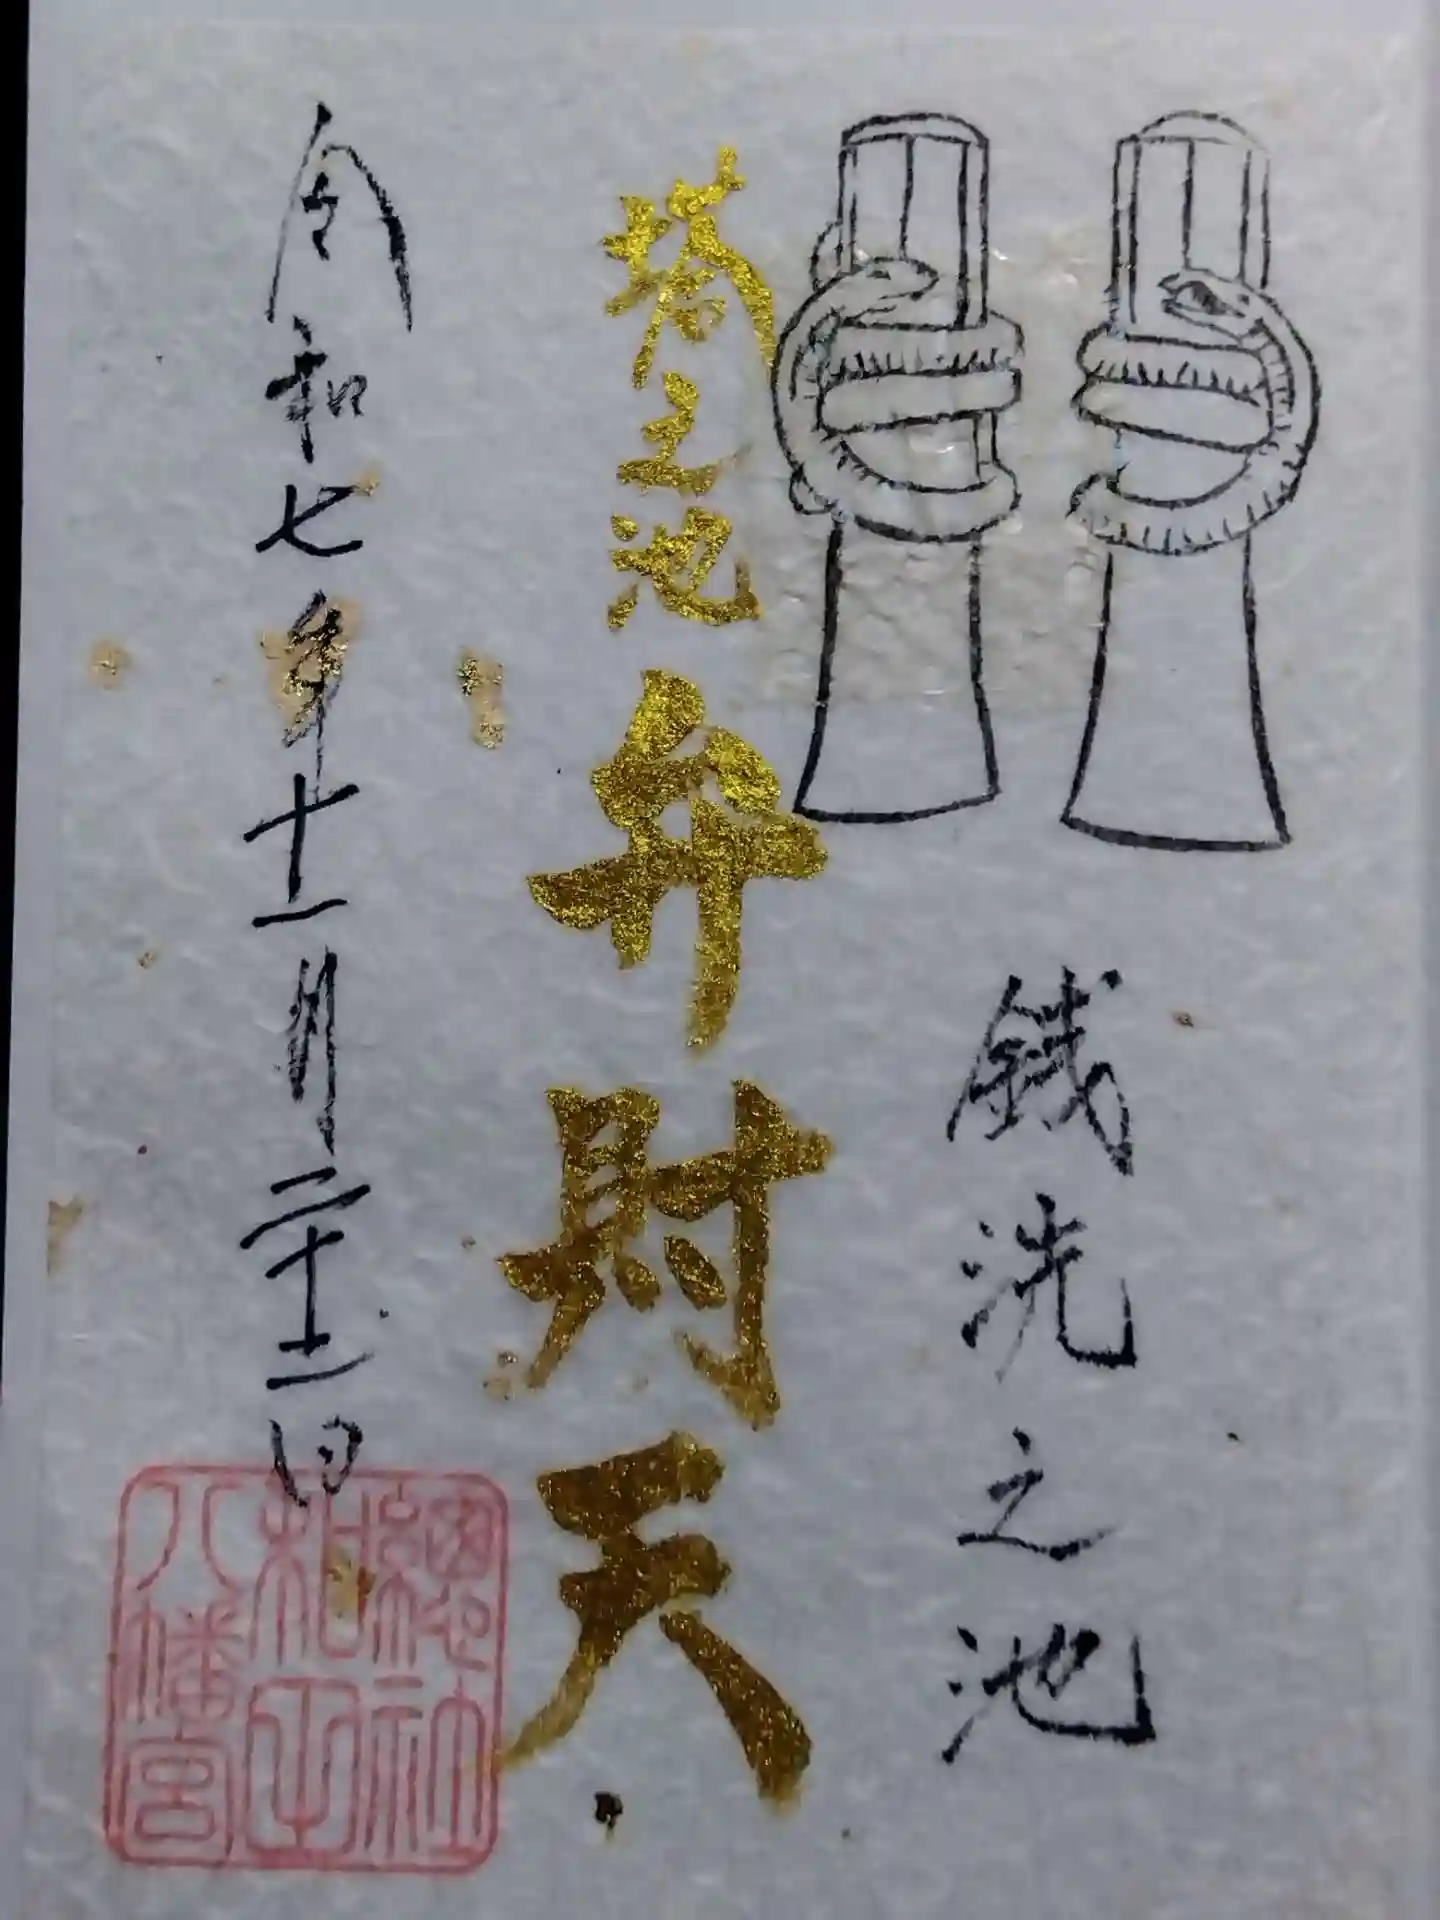 銭洗之池
塔之池
弁財天
令和七年十一月二十二日
總社
八幡宮